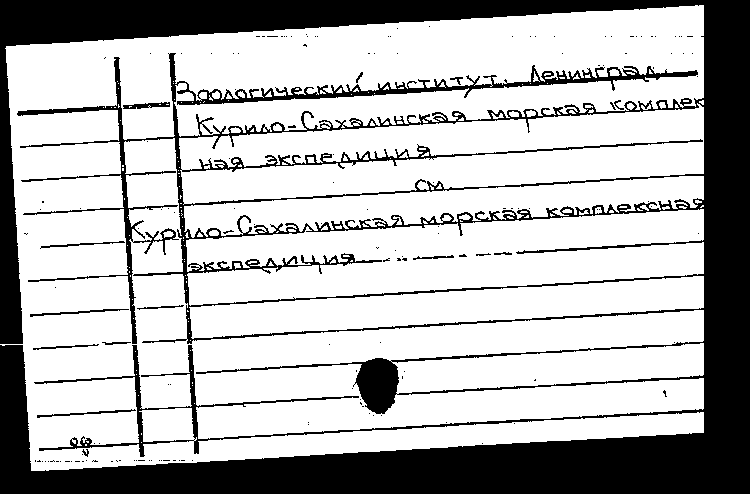 Зоологический институт. Ленинград.
Курило-Сахалинская морская комплек
ная экспедиция
см.
Курило-Сахалинская морская комплексная
экспедиция